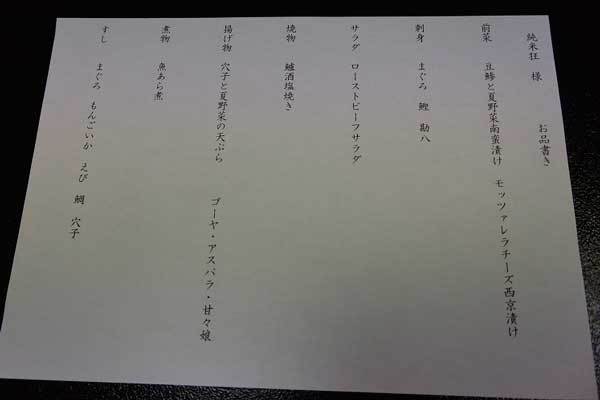 純米狂　様　　お品書き
前菜　豆鯵と夏野菜南蛮漬け　モッツァレラチーズ西京漬け
刺身　まぐろ　鰹　勘八
サラダ　ローストビーフサラダ
焼物　鱸酒塩焼き
揚げ物　穴子と夏野菜の天ぷら　ゴーヤ・アスパラ・甘々娘
煮物　魚あら煮
すし　まぐろ　もんごいか　えび　鯛　穴子